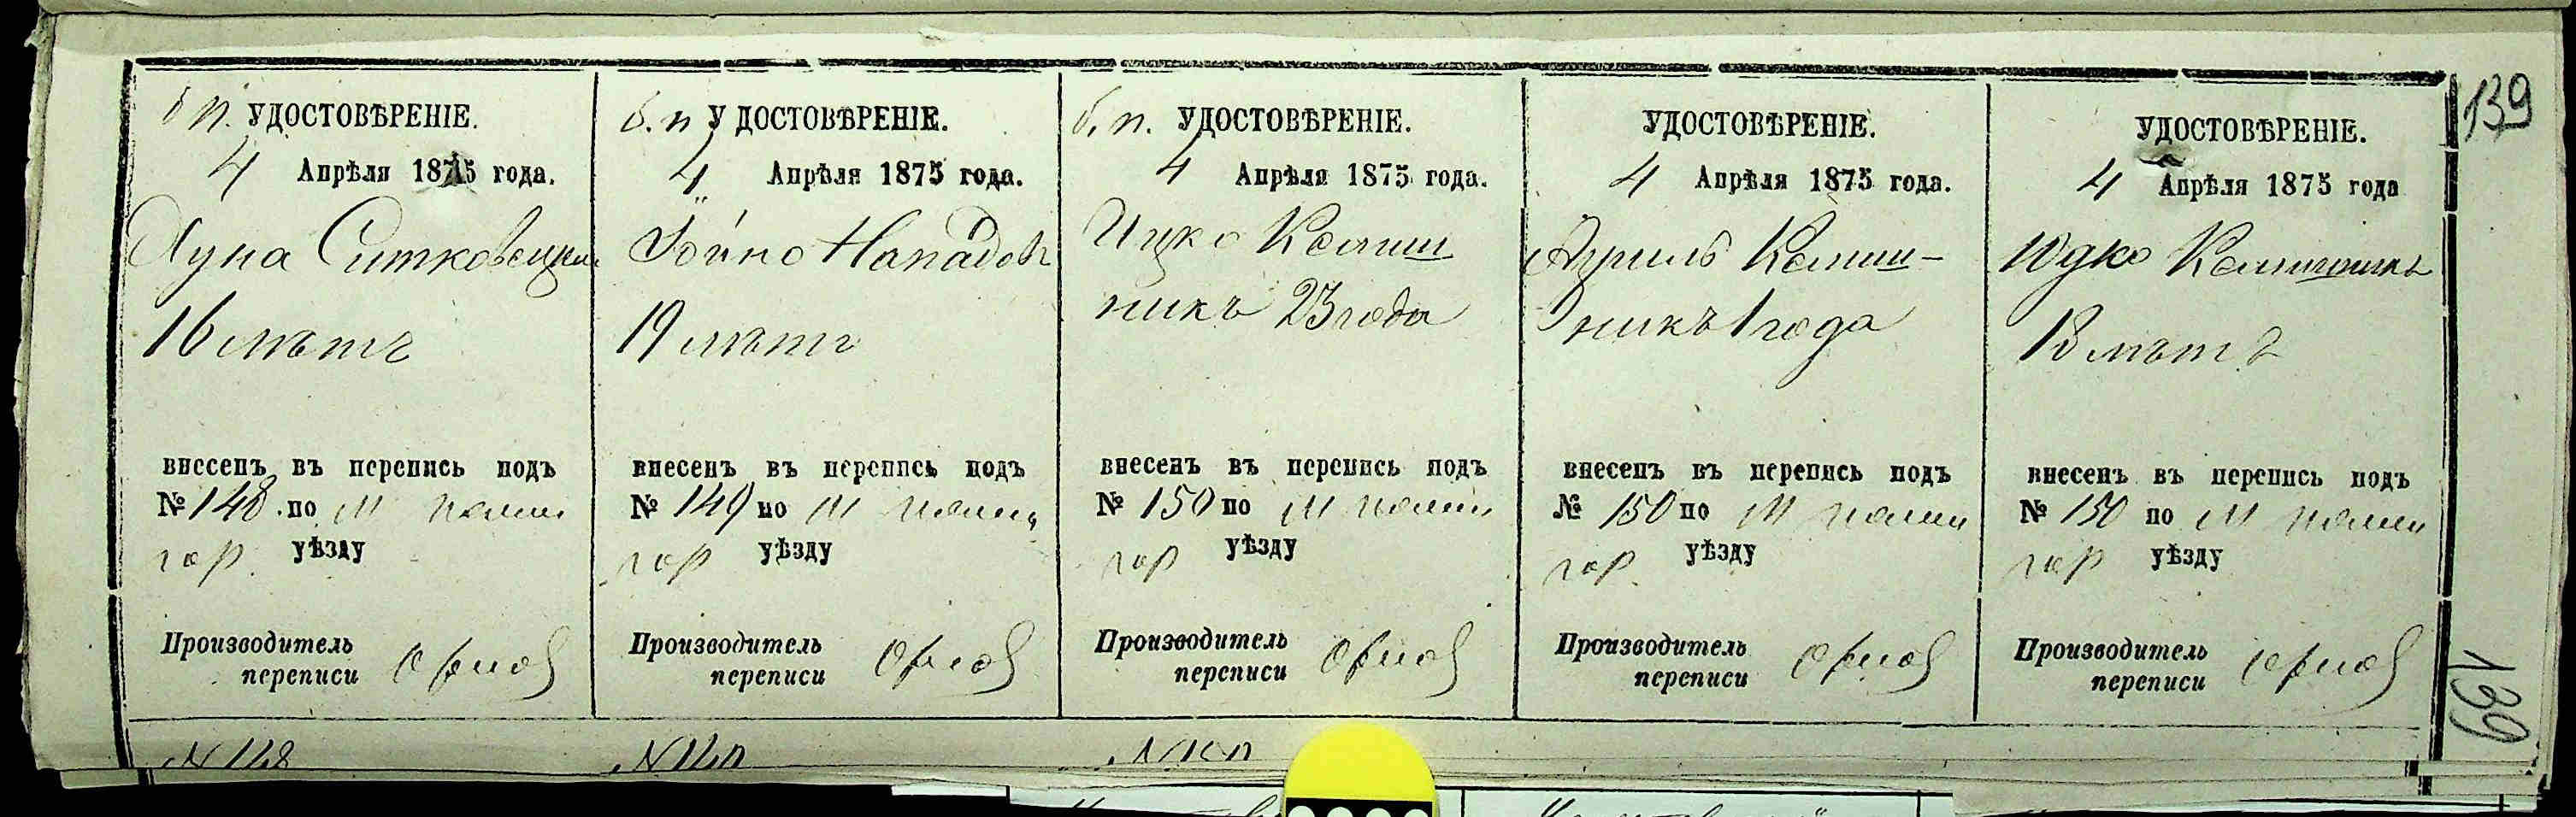 139
б п. УДОСТОВѢРЕНІЕ.
4 Апрѣля 1875 года.
Луна Ситковецкій
16 лѣтъ
внесенъ въ перепись подъ
№ 148 по м
гор. уѣзду
Производитель
переписи
б. п УДОСТОВѢРЕНІЕ.
4 Апрѣля 1875 года.
Гойно
19 лѣтъ
внесенъ въ перепись подъ
№ 149 по м
гор уѣзду
Производитель
переписи
б. п. УДОСТОВѢРЕНІЕ.
4 Апрѣля 1875 года.
Ицко Калиш
никъ 23 года
внесенъ въ перепись подъ
№ 150 по м
гор уѣзду
Производитель
переписи
УДОСТОВѢРЕНІЕ.
4 Апрѣля 1875 года.
Калиш-
никъ 1 года
внесенъ въ перепись подъ
№ 150 по м
гор. уѣзду
Производитель
переписи
УДОСТОВѢРЕНІЕ.
4 Апрѣля 1875 года
Юдко Калишникъ
18 лѣтъ
внесенъ въ перепись подъ
№ 150 по м
гор уѣзду
Производитель
переписи
139